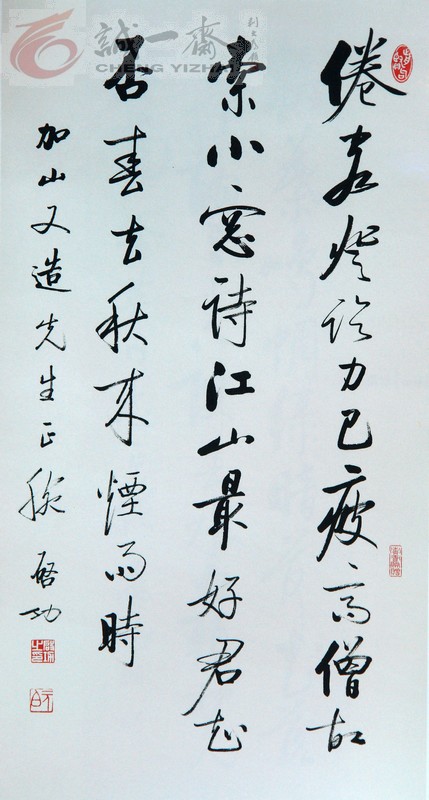 誠一齋
CHENG YIZHAI
倦客登临力已疲高僧故
索小窓詩江山最好君知
否春去秋来煙雨時
加山又造先生正腕 啓功